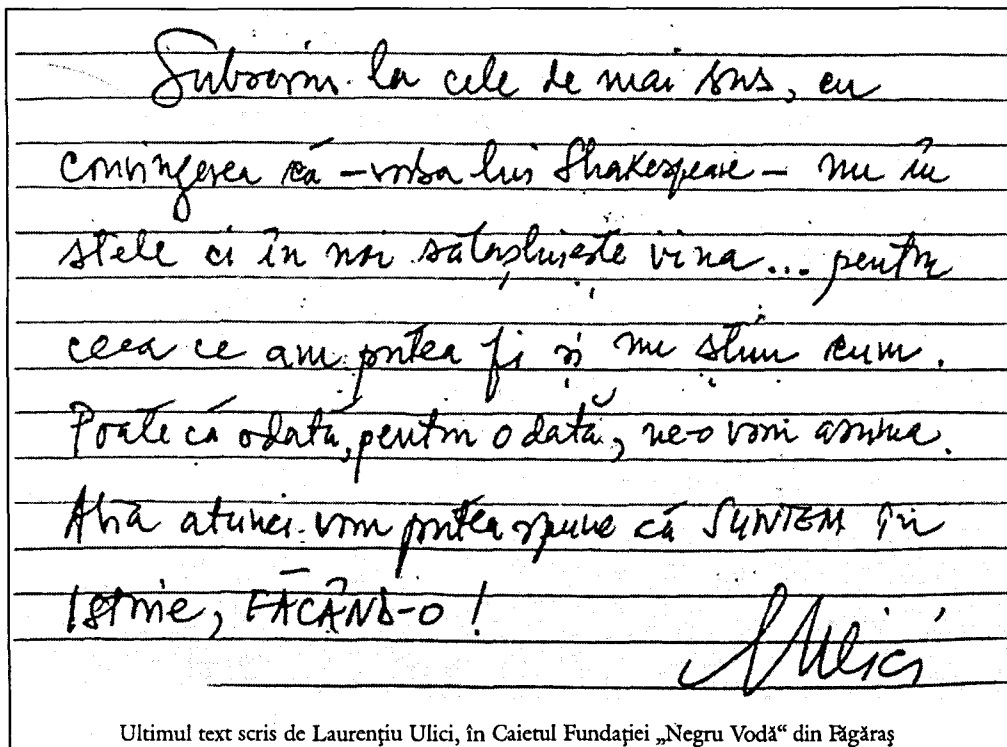 Subscriu la cele de mai sus, cu
convingerea că – vorba lui Shakespeare – nu în
stele ci în noi sălășluiește vina... pentru
ceea ce am putea fi și nu știm cum.
Poate că odată, pentru o dată, ne-o vom asuma.
Abia atunci vom putea spune că SUNTEM în
Istorie, FĂCÂND-O!
Ulici
Ultimul text scris de Laurenţiu Ulici, în Caietul Fundaţiei „Negru Vodă“ din Făgăraş